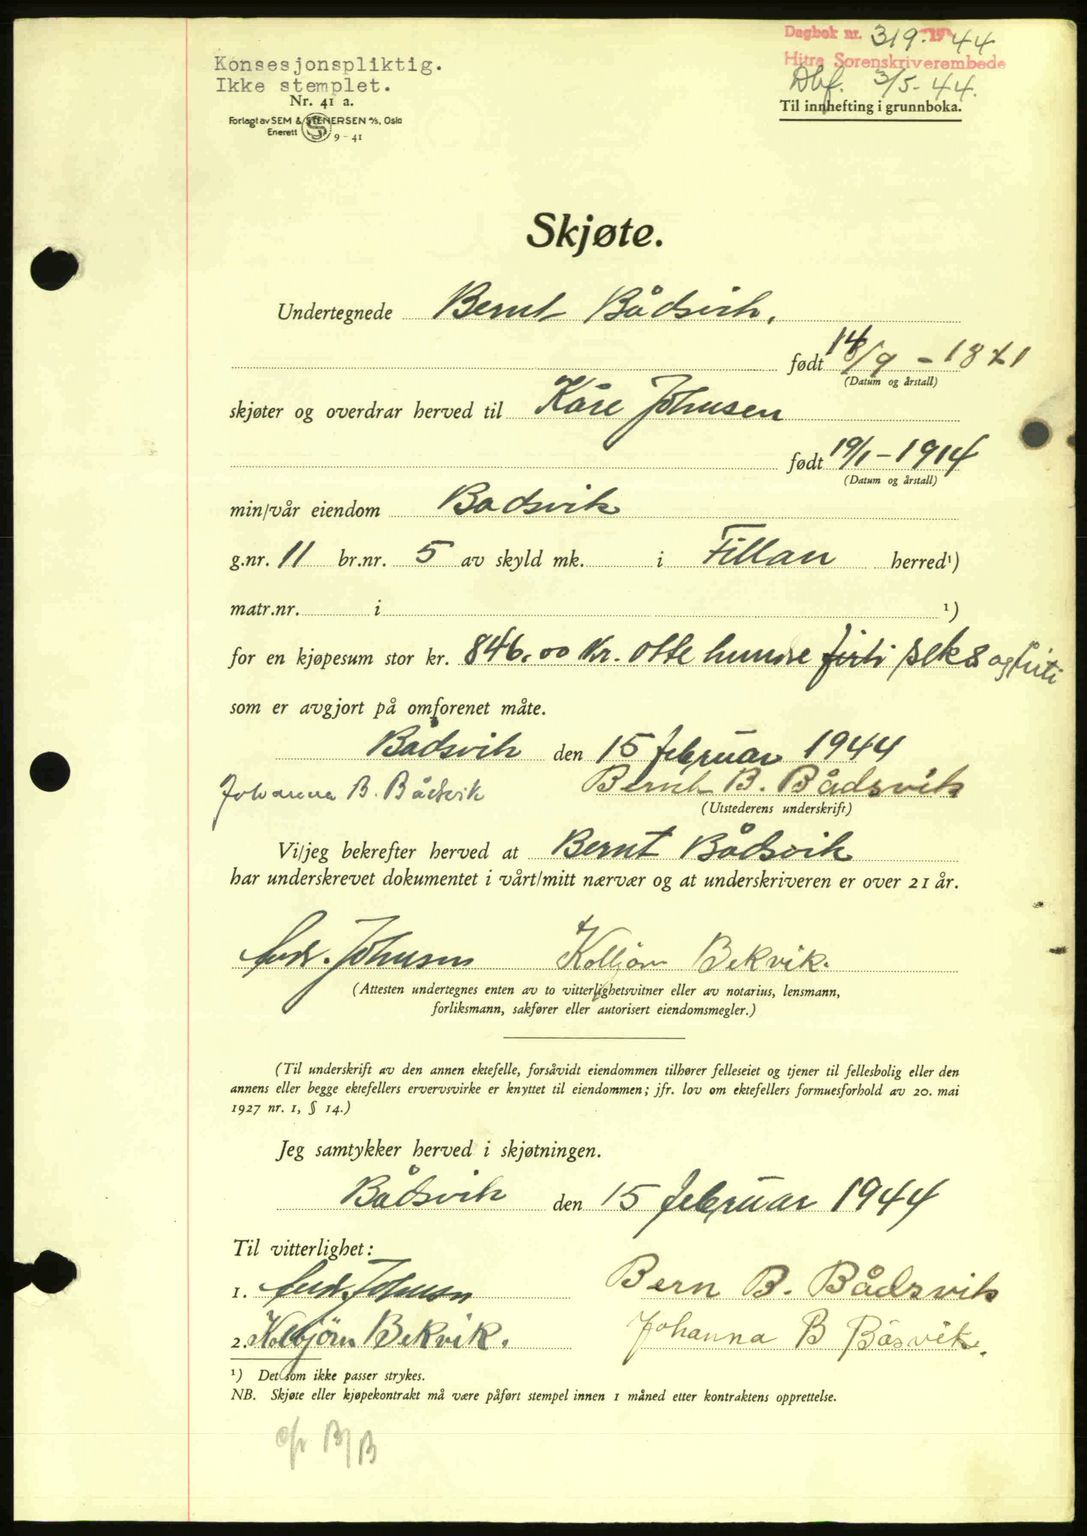 Dagbok nr. 319. 1944
Konsesjonspliktig.
Ikke stemplet.
Hitra Sorenskriverembede
Dbf. 3/5-44.
Nr. 41 a.
Til innhefting i grunnboka.
Forlagt av SEM & STENERSEN A/S, Oslo
Enerett
9 - 41
Skjøte.
Undertegnede Bernt Bådsvik.
født 14/9 - 1871
(Datum og årstall)
skjøter og overdrar herved til Kåre Johnsen
født 19/1 - 1914
(Datum og årstall)
min/vår eiendom Badsvik
g.nr. 11 br.nr. 5 av skyld mk. i Fillan herred¹)
matr.nr. i ¹)
for en kjøpesum stor kr. 846,00 Kr. otte hundre firti seks og firti
som er avgjort på omforenet måte.
Bådsvik den 15 februar 1944
Johanna B. Bådsvik Bernt B. Bådsvik
(Utstederens underskrift)
Vi/jeg bekrefter herved at Bernt Bådsvik
har underskrevet dokumentet i vårt/mitt nærvær og at underskriveren er over 21 år.
Andr. Johnsen Kolbjörn Bekvik.
(Attesten undertegnes enten av to vitterlighetsvitner eller av notarius, lensmann,
forliksmann, sakfører eller autorisert eiendomsmegler.)
(Til underskrift av den annen ektefelle, forsåvidt eiendommen tilhører felleseiet og tjener til fellesbolig eller den
annens eller begge ektefellers ervervsvirke er knyttet til eiendommen; jfr. lov om ektefellers formuesforhold av 20. mai
1927 nr. 1, § 14.)
Jeg samtykker herved i skjøtningen.
Bådsvik den 15 februar 1944
Til vitterlighet:
1. Andr. Johnsen Bern B. Bådsvik
2. Kolbjörn Bekvik. Johanna B Båsvik.
¹) Det som ikke passer strykes.
NB. Skjøte eller kjøpekontrakt må være påført stempel innen 1 måned etter kontraktens opprettelse.